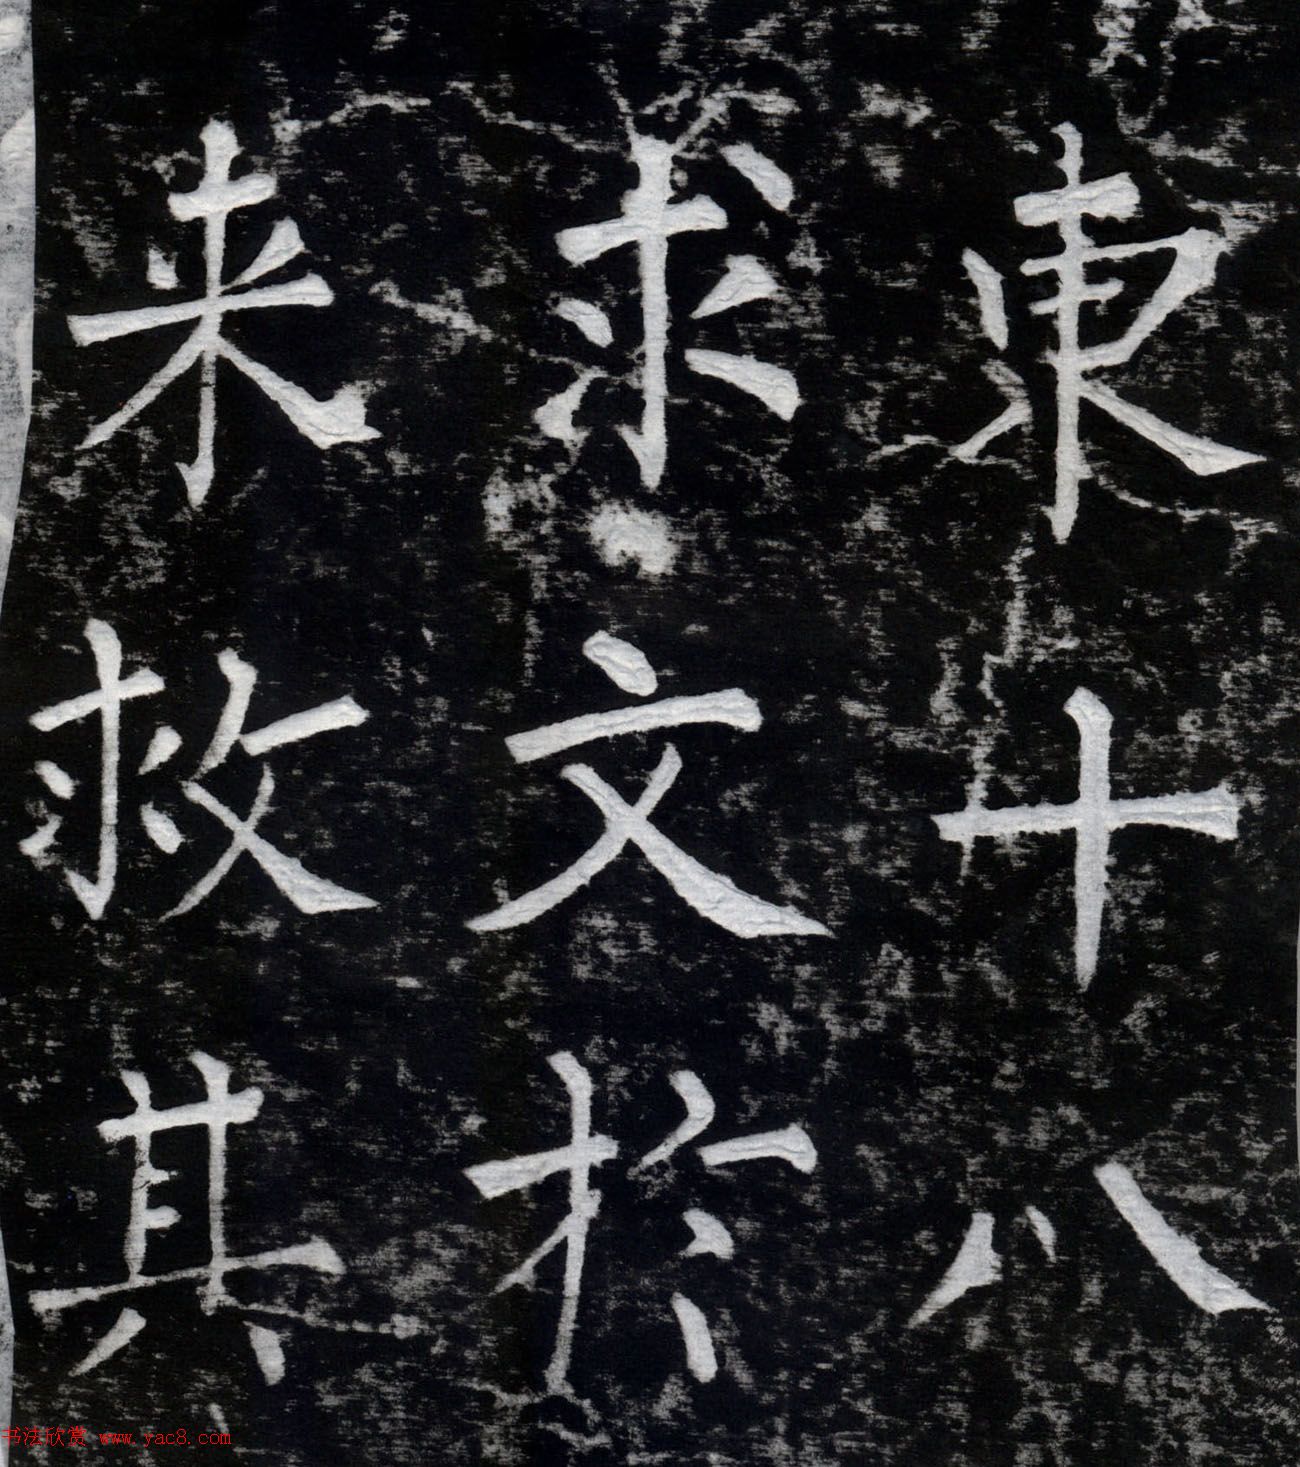 東十八
求文於
来救其
书法欣赏 www.yac8.com